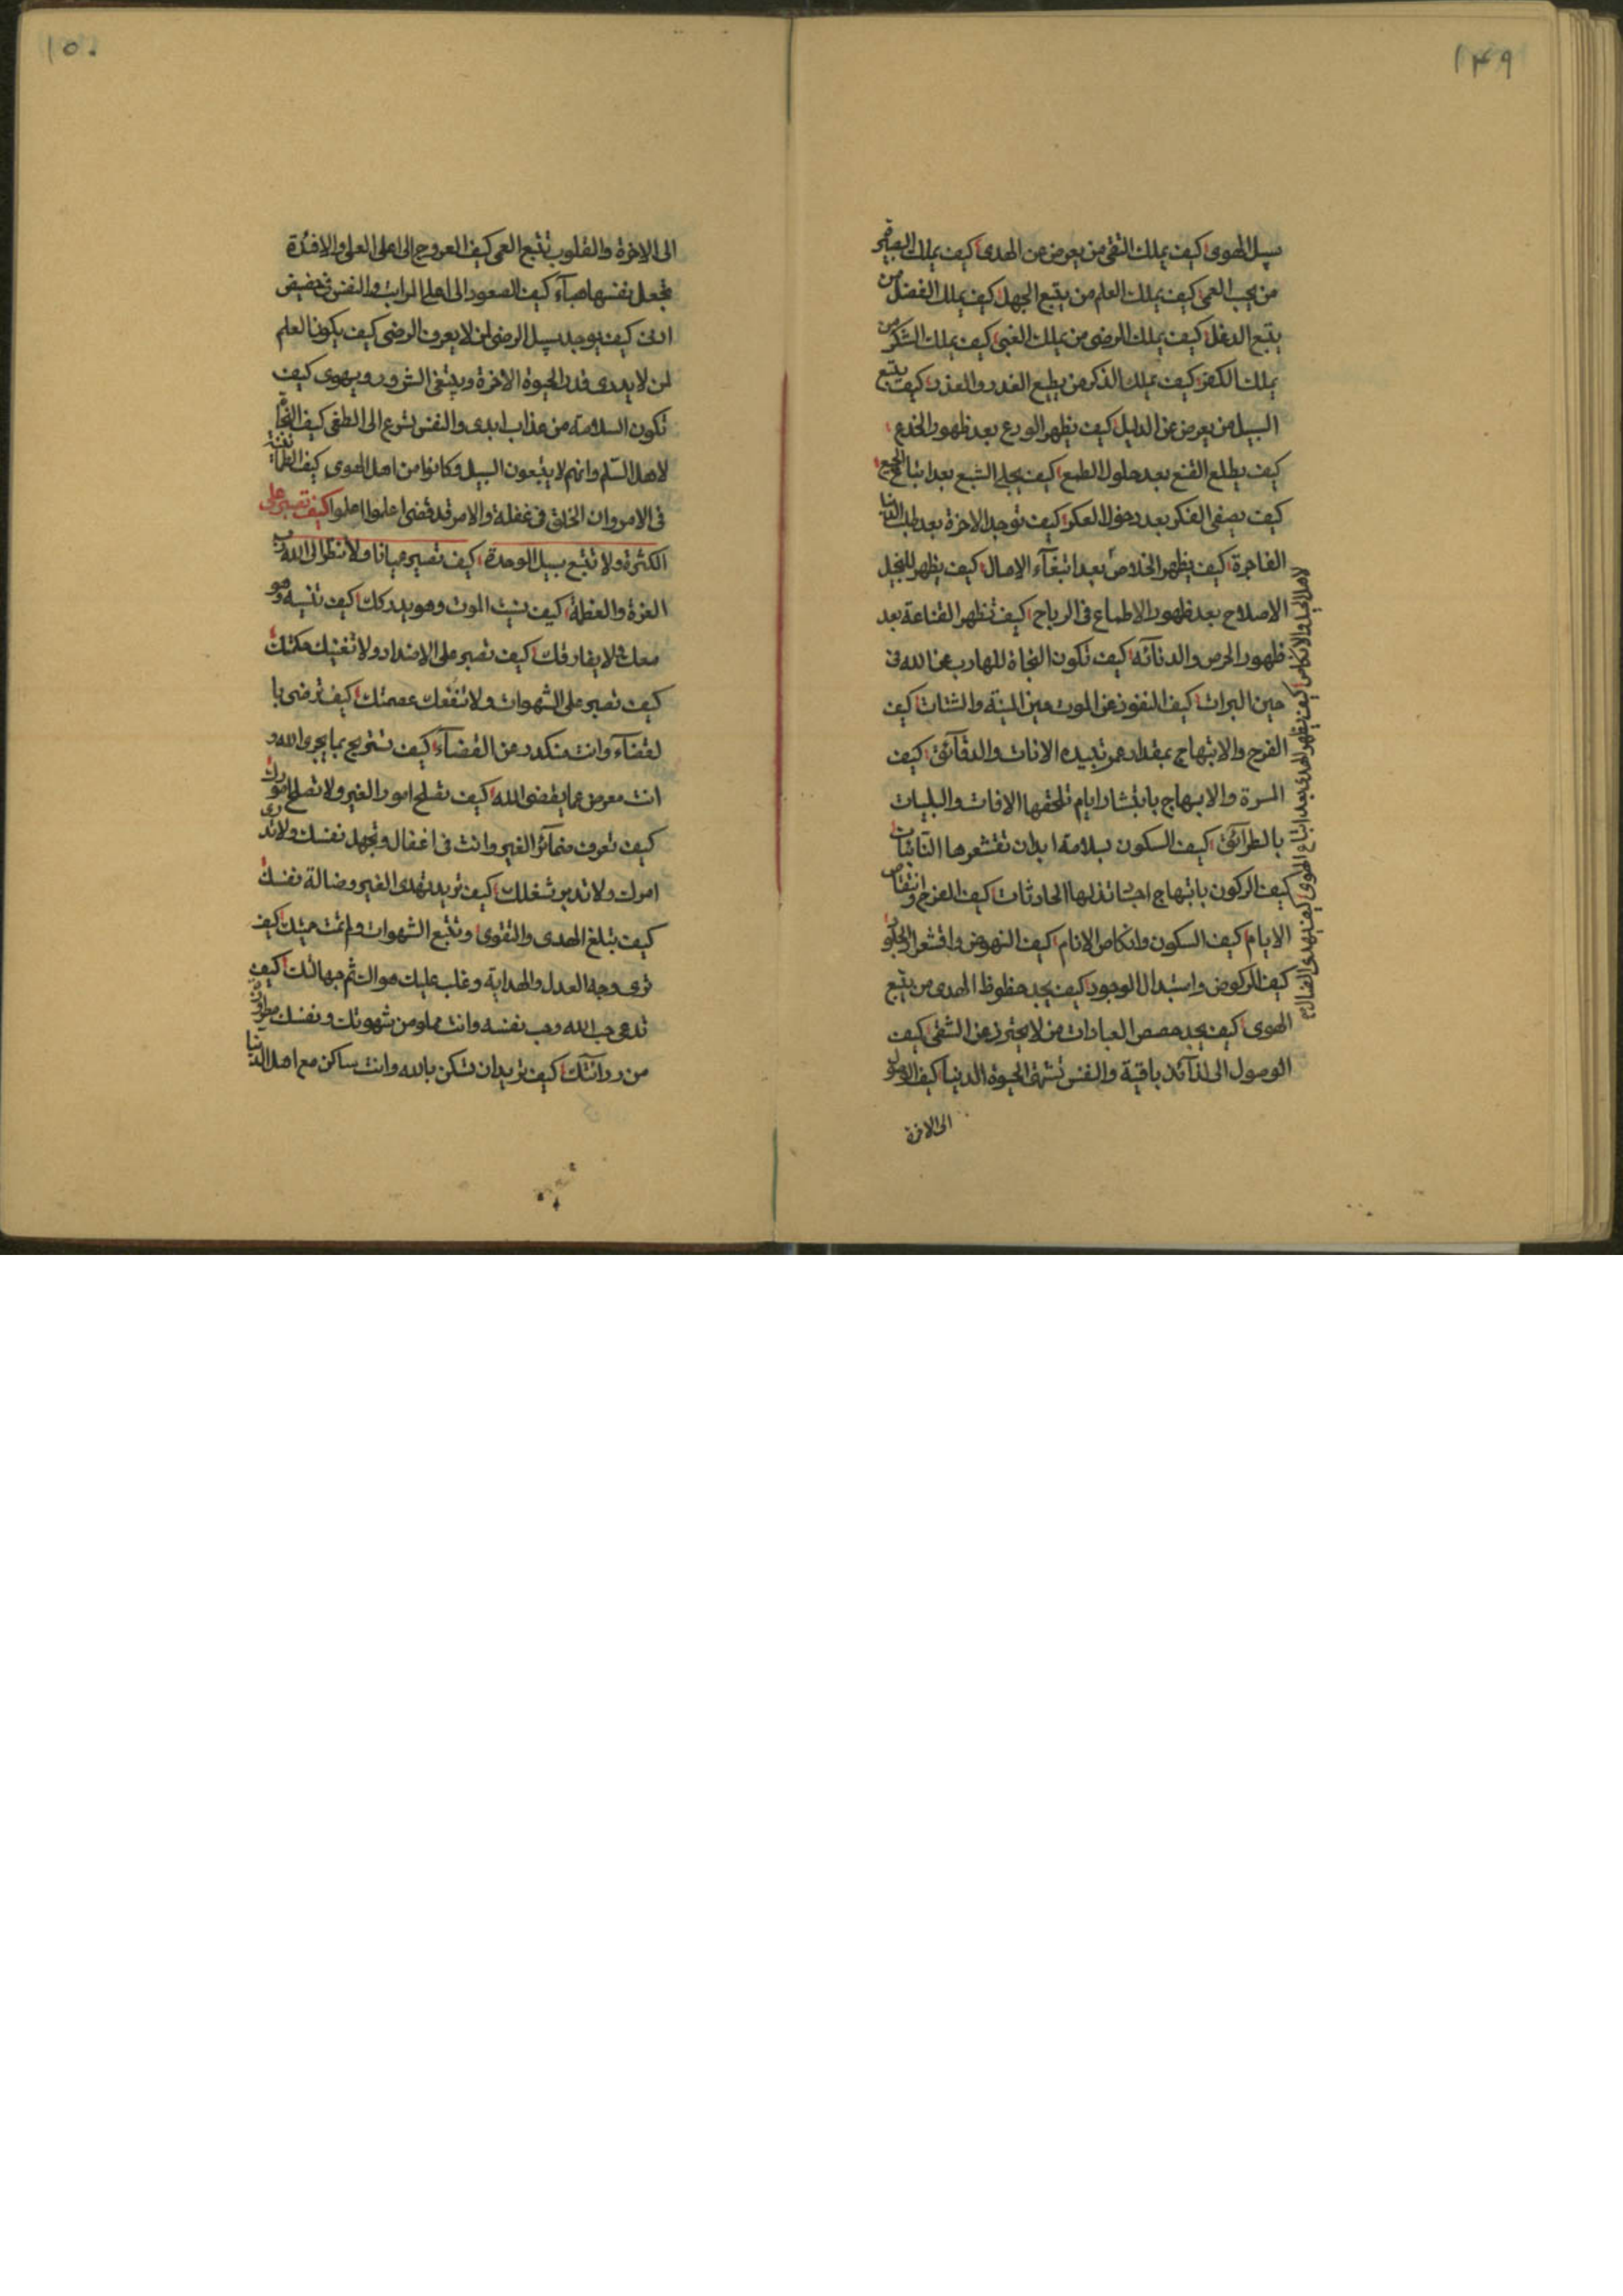 ١٤٩
سبيل الهوى كيف يملك التقى من يعرض عن الهدى كيف يملك البصير
من يحب العمى كيف يملك العلم من يتبع الجهل كيف يملك الفضل من
يتبع الدغل كيف يملك الرضى من يملك الغبى كيف يملك الشكر من
يملك الكفر كيف يملك الذكر من يطيع الغدر والعذر كيف يتبع
السبيل من يعرض عن الدليل كيف يظهر الورع بعد ظهور الخدع
كيف يطلع القنع بعد حلول الطمع كيف يجلى الشبع بعد اتباع
كيف يصفى الفكر بعد دخول العكر كيف توجد الاخرة بعد طلب الدنيا
الفاجرة كيف يظهر الخلاص بعد ابتغآء الامال كيف يظهر للبخيل
الاصلاح بعد ظهور الاطماع فى الرباح كيف تظهر القناعة بعد
ظهور الحرص والدنآئه كيف تكون النجاة للهارب عن الله فى
حين البرات كيف النفوذ عن الموت حين الميتة والشتات كيف
الفرح والابتهاج بمقدار عمر تبيده الانات والدقآئق كيف
المسرة والابهاج بابتشار ايام تلحقها الافات والبليات
بالطرآئق كيف السكون بسلامة ابدان تقشعرها النآئبات
كيف الركون بابتهاج تذلها الحادثات كيف الفرح وانتقاص
الايام كيف السكون وانكاص الانام كيف النهوض واقشعرار
كيف الركوض واستبدال الوجود كيف يجد حظوظ الهدى من يتبع
الهوى كيف يجد حصص العبادات من لا يحترز عن الشقى كيف
الوصول الى لذآئذ باقية والنفس تشتهى الحيوة الدنيا كيف الوصول
الى الاخرة
كيف يظهر الهدى بعد اتباع الهوى كيف يهدى الضال
١٥٠
الى الاخرة والقلوب تتبع العمى كيف العروج الى اعلى العلى والافئدة
تجعل نفسها هبآء كيف الصعود الى اعلى المراتب والنفس فى حضيض
ادنى كيف يوجد سبيل الرضى لمن لا يعرف الرضى كيف يكون العلم
لمن لا يدرى قدر الحيوة الاخرة ويبتغى الشرور ويهوى كيف
تكون السلامة من عذاب ابدى والنفس تسرع الى الطغى كيف النجاة
لاهل السلم وانهم لا يتبعون السبيل وكانوا من اهل الهوى كيف الطمأنينة
فى الامر وان الخلق فى غفلة والامر قد قضى اعلموا اعلموا كيف تصبر على
الكثرة ولا تتبع سبيل الوحدة كيف تصير عيانا ولا تنظر الى الله رب
العزة والعظمة كيف نسيت الموت وهو يدركك كيف تنسيه وهو
معك ولا يفارقك كيف تصبر على الانداد ولا تغنيك حكمتك
كيف تصبر على الشهوات ولا تنفعك عصمتك كيف ترضى با
لقضآء وانت منكدر عن القضآء كيف تستريح بما يجرى الله و
انت معرض عما يقضى الله كيف تصلح امور الغير ولا تصلح امورك
كيف تعرف ضمآئر الغير وانت فى اغفال وتجهل نفسك ولا تدرى
امرك ولا تدبر شغلك كيف تريد تهدى الغير وضالة نفسك
كيف تبلغ الهدى والتقوى وتتبع الشهوات كيف
ترى وجه العدل والهداية وغلب عليك هواك ثم جهالتك كيف
تدعى حب الله وحب نفسه وانت مملو من شهوتك ونفسك
من ردائتك كيف تريد ان تسكن بالله وانت ساكن مع اهل الدنيا